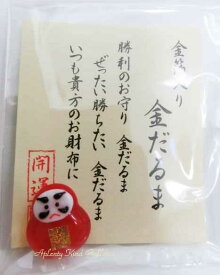 金箔入り
金だるま
勝利のお守り 金だるま
ぜったい勝ちたい 金だるま
いつも貴方のお財布に
開運
Aplenty Kind Affection